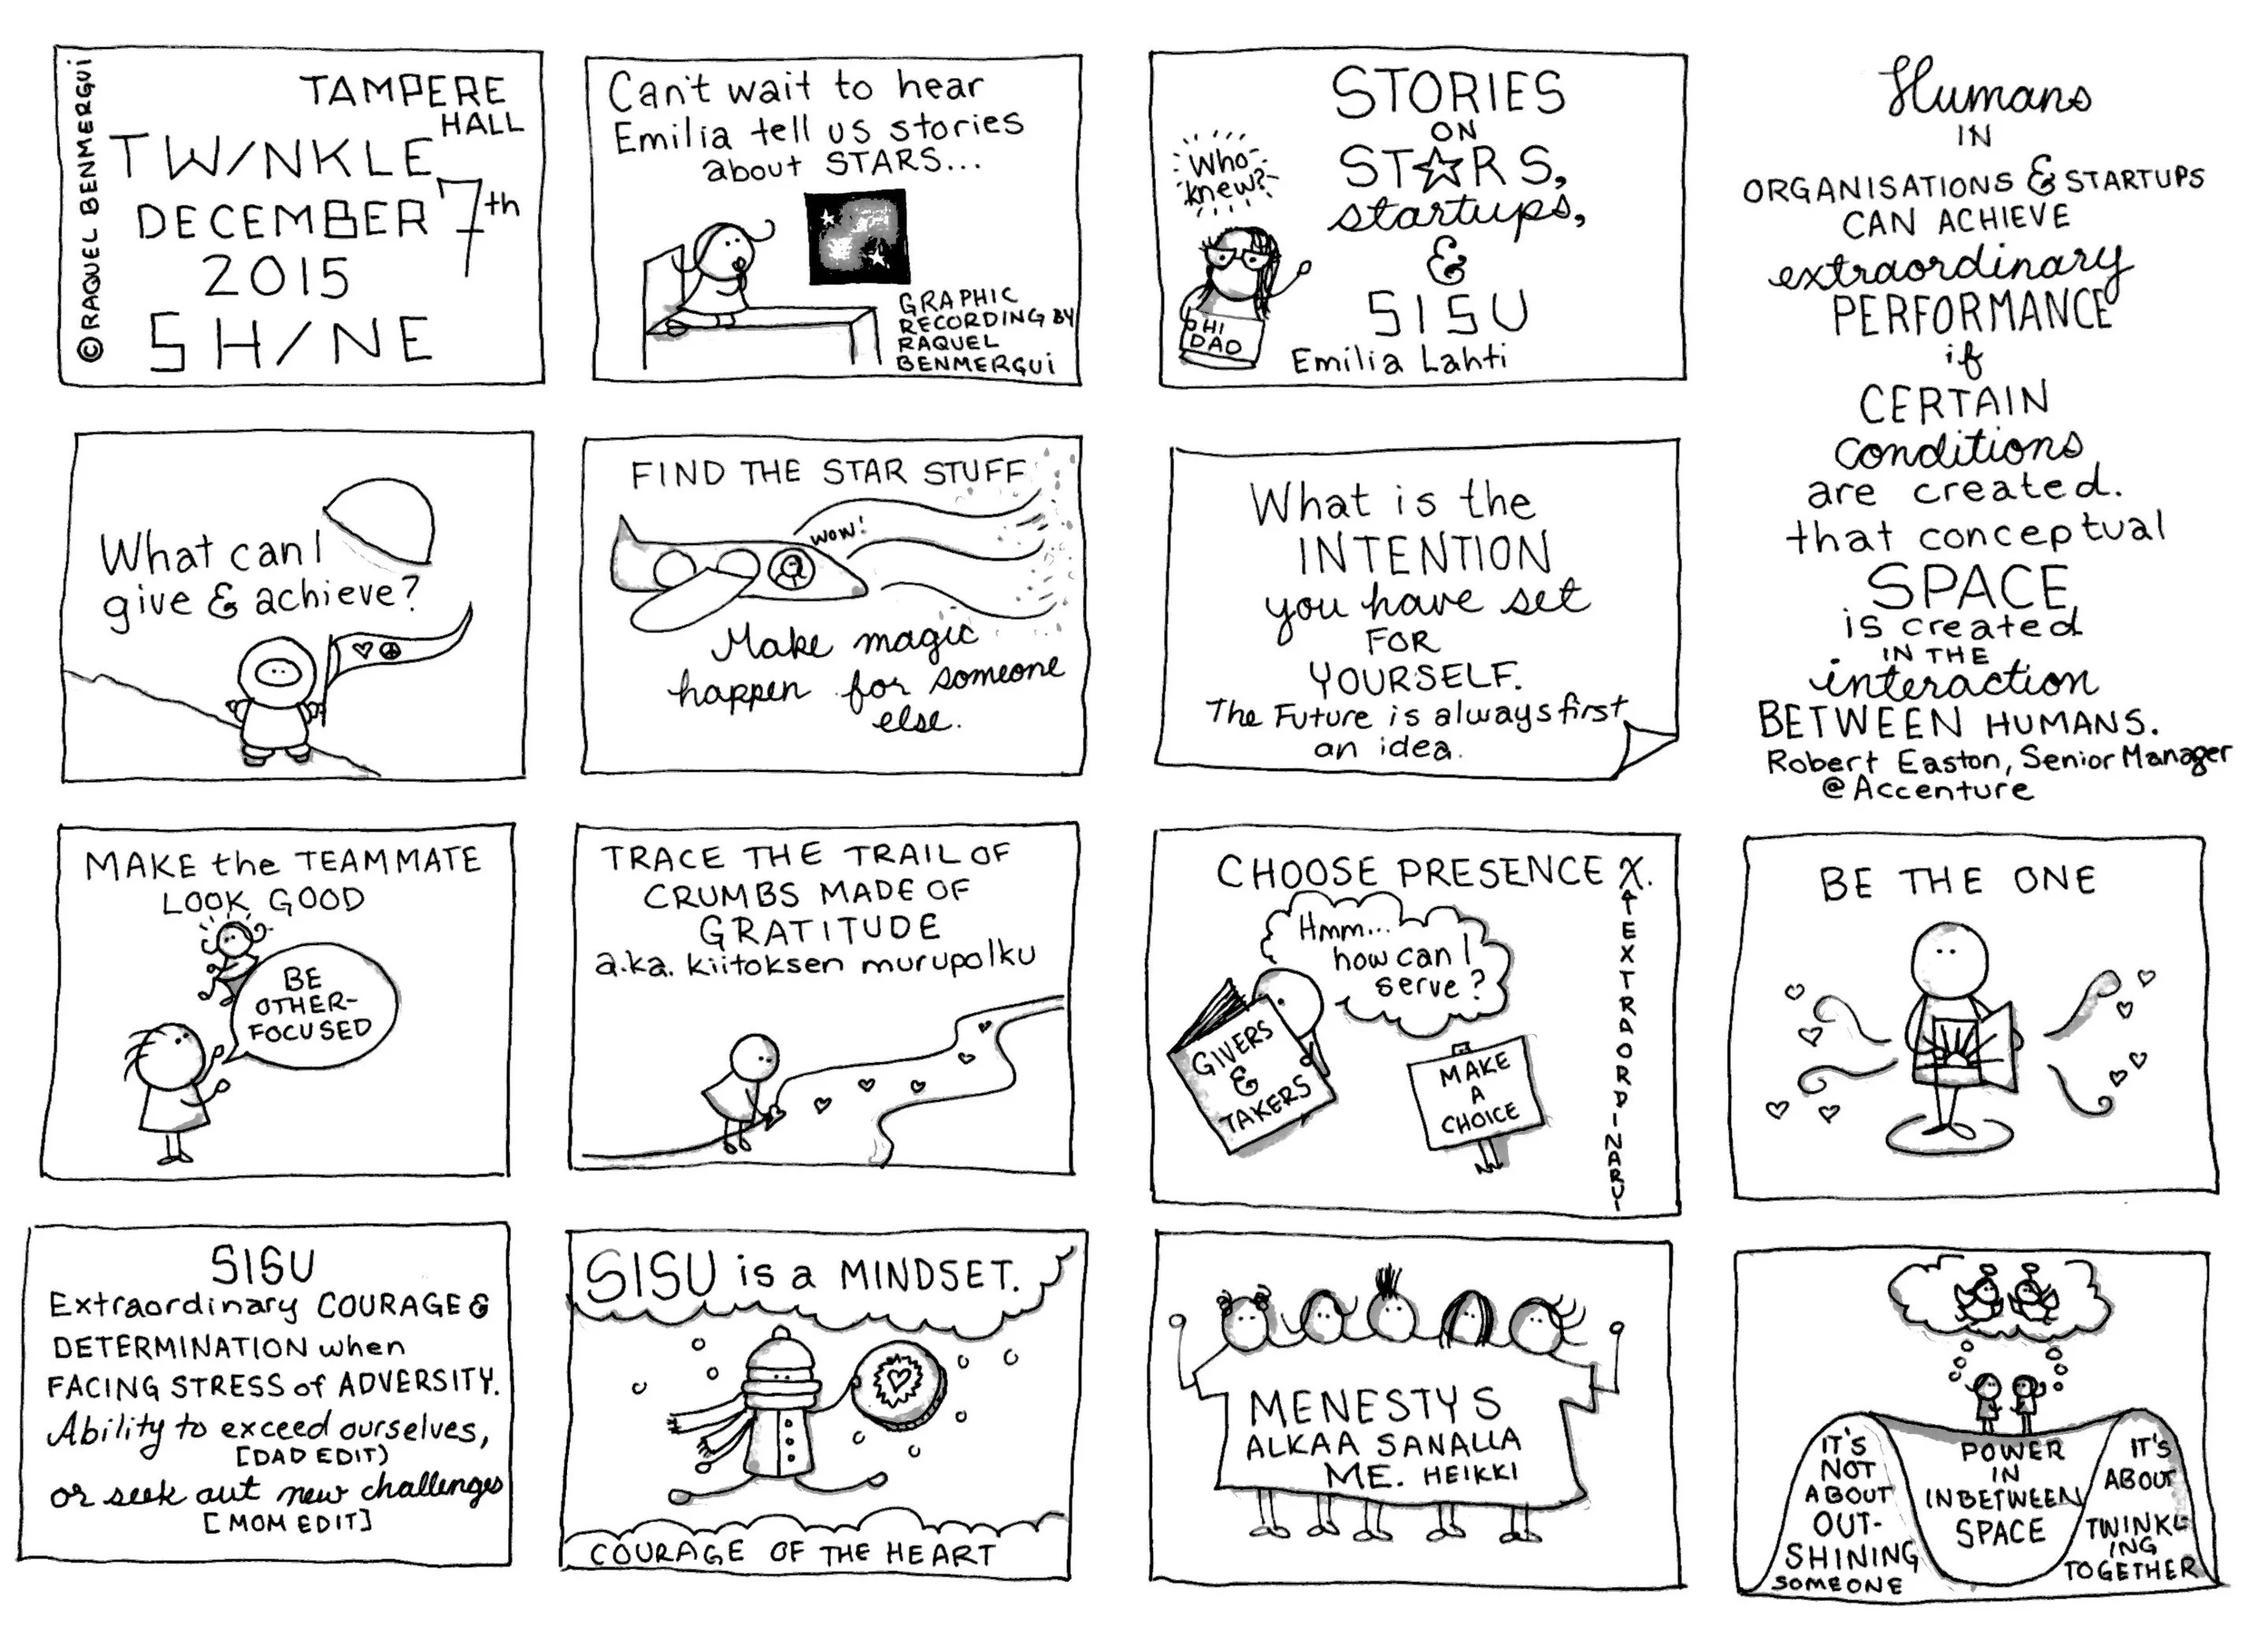 © RAQUEL BENMERGUI
TAMPERE
HALL
TWINKLE
DECEMBER 7th
2015
SHINE
Can't wait to hear
Emilia tell us stories
about STARS...
GRAPHIC
RECORDING BY
RAQUEL
BENMERGUI
STORIES
ON
ST☆RS,
startups,
&
SISU
Emilia Lahti
Who
knew?
HI
DAD
Humans
IN
ORGANISATIONS & STARTUPS
CAN ACHIEVE
extraordinary
PERFORMANCE
if
CERTAIN
conditions
are created.
that conceptual
SPACE
is created
IN THE
interaction
BETWEEN HUMANS.
Robert Easton, Senior Manager
@ Accenture
What can I
give & achieve?
FIND THE STAR STUFF
WOW!
Make magic
happen for someone
else.
What is the
INTENTION
you have set
FOR
YOURSELF.
The Future is always first
an idea.
MAKE the TEAMMATE
LOOK GOOD
BE
OTHER-
FOCUSED
TRACE THE TRAIL OF
CRUMBS MADE OF
GRATITUDE
a.k.a. kiitoksen murupolku
CHOOSE PRESENCE X.
EXTRAORDINARY
Hmm...
how can I
serve?
GIVERS
&
TAKERS
MAKE
A
CHOICE
BE THE ONE
SISU
Extraordinary COURAGE &
DETERMINATION when
FACING STRESS of ADVERSITY.
Ability to exceed ourselves,
[DAD EDIT)
or seek out new challenges
[MOM EDIT]
SISU is a MINDSET.
COURAGE OF THE HEART
MENESTYS
ALKAA SANALLA
ME. HEIKKI
IT'S
NOT
ABOUT
OUT-
SHINING
SOMEONE
POWER
IN
INBETWEEN
SPACE
IT'S
ABOUT
TWINKL
ING
TOGETHER